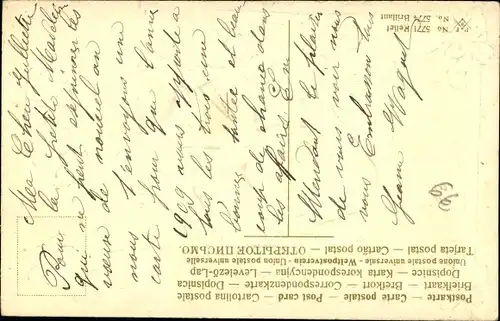 Postkarte — Carte postale — Post card — Cartolina postale
Briefkaart — Brefkort — Correspondenzkarte — Dopisnica
Dopisnice — Karta korespondencyjna — Levelező-Lap
Unions postale universelle - Weltpostverein - Union postale universelle
Tarjeta postal — Cartão postal — ОТКРЫТОЕ ПИСЬМО.
No 5771 Relief
No 5774 Brillant
Pour
la petite
qui ne peut exprimer les
vœux de nouvel an
nous t'envoyons une
carte pour que l'année
1909 vous apporte a
tous les trois une
bonne santée et beau
coup de chance dans
les affaires En
Attendant le plaisir
de vous voir nous
vous Embrassons tous
Waguet